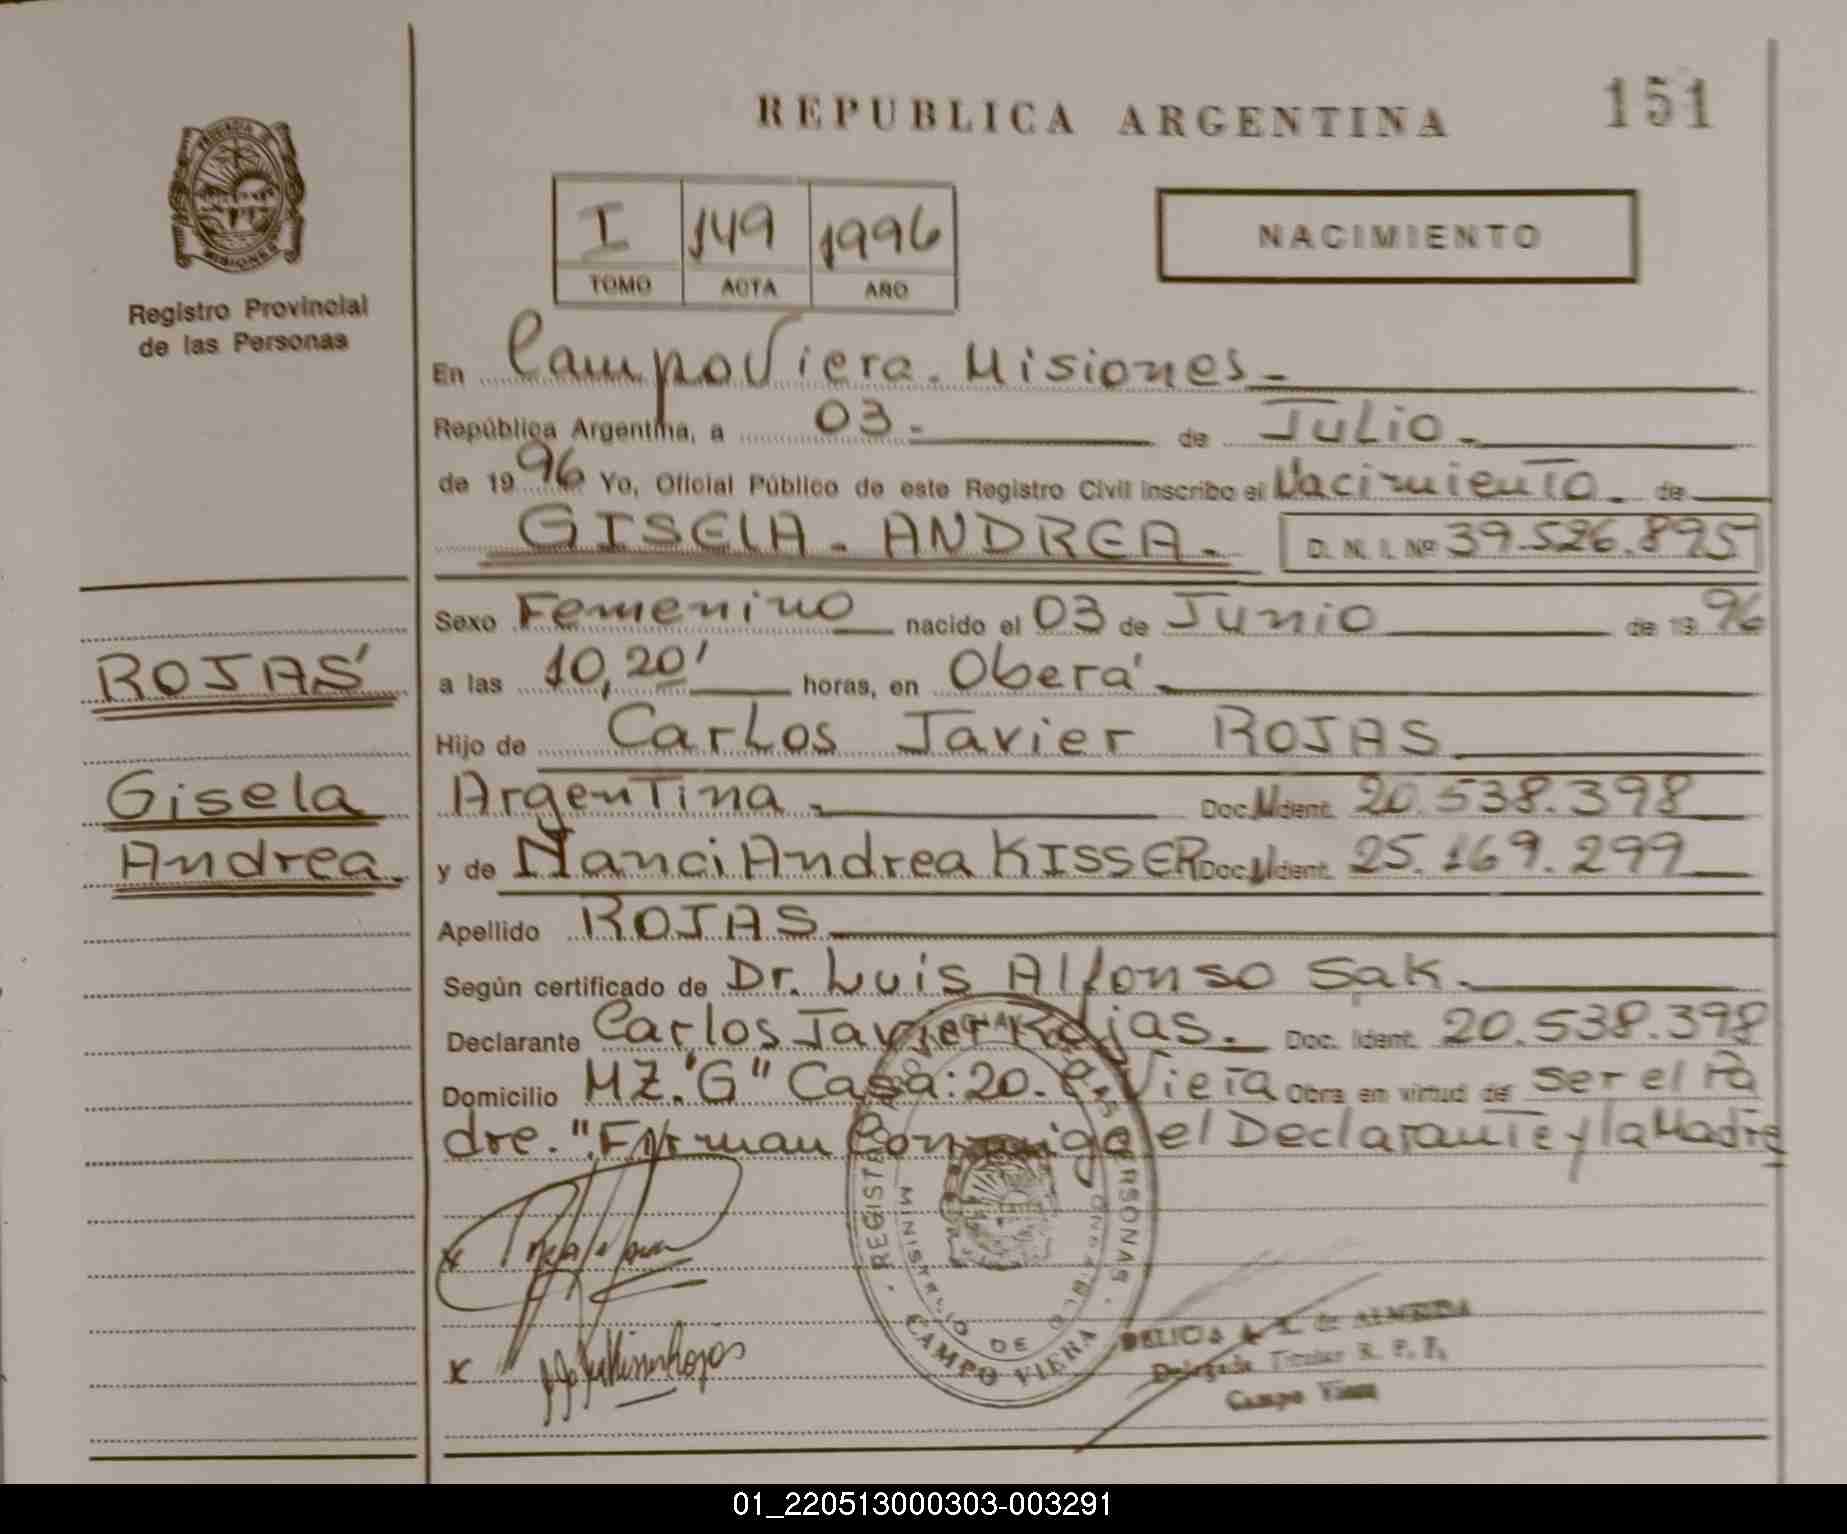 REPUBLICA ARGENTINA
151
MISIONES
Registro Provincial
de las Personas
I 149 1996
TOMO ACTA AÑO
NACIMIENTO
En Campo Viera. Misiones.-
República Argentina, a 03.- de Julio.-
de 1996 Yo, Oficial Público de este Registro Civil inscribo el Nacimiento. de
GISELA - ANDREA.- D. N. I. Nº 39.526.895
Sexo Femenino nacido el 03 de Junio de 1996
ROJAS
a las 10,20' horas, en Oberá.-
Hijo de Carlos Javier ROJAS
Gisela
Andrea.
Argentina.- Doc. Ident. 20.538.398
y de Nanci Andrea KISSER Doc. Ident. 25.169.299
Apellido ROJAS
Según certificado de Dr. Luis Alfonso Sak.-
Declarante Carlos Javier Rojas.- Doc. Ident. 20.538.398
Domicilio MZ. "G" Casa: 20. C. Viera Obra en virtud de ser el Pa
dre. "Firman Conmigo el Declarante y la Madre
x
x
REGISTRO PERSONAS
MINISTERIO DE GOBIERNO
CAMPO VIERA
DELICIA de ALMEIDA
Delegada Titular R. P. P.
Campo Viera
01_220513000303-003291